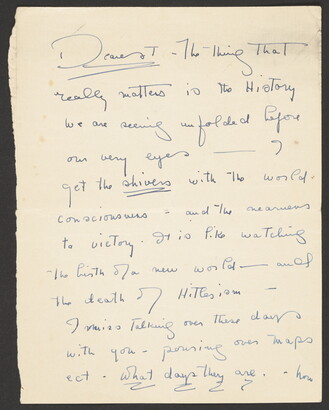 Dearest - The thing that
really matters is the History
we are seeing unfolded before
our very eyes — I
get the shivers with the world-
consciousness - and the nearness
to victory. It is like watching
the birth of a new world — and
the death of Hitlerism -
I miss talking over these days
with you - pouring over maps
ect. What days they are. - how